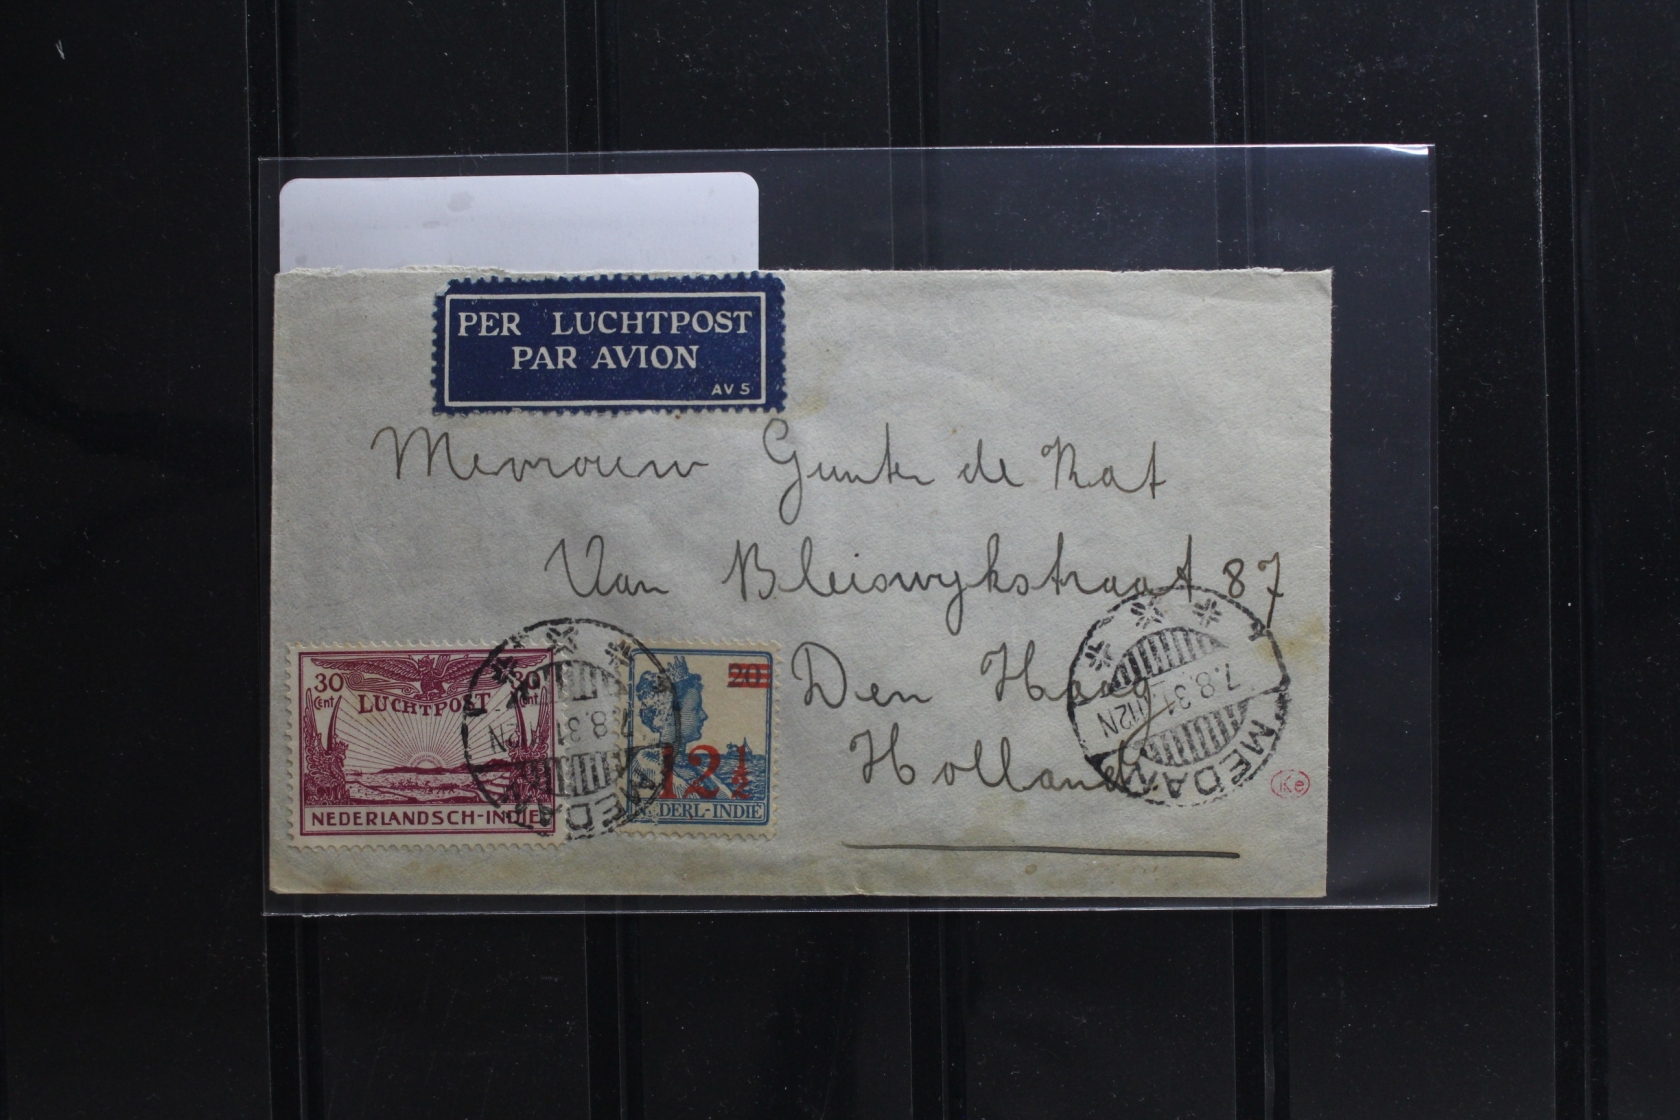 PER LUCHTPOST
PAR AVION
AV 5
Mevrouw Gunter de Raat
Van Bleiswykstraat 87
Den Haag
Holland
30 cent
LUCHTPOST
30 cent
NEDERLANDSCH-INDIE
20
12½
NEDERL-INDIE
7.8.31
12N
MEDAN
7.8.31
12N
MEDAN
Ke